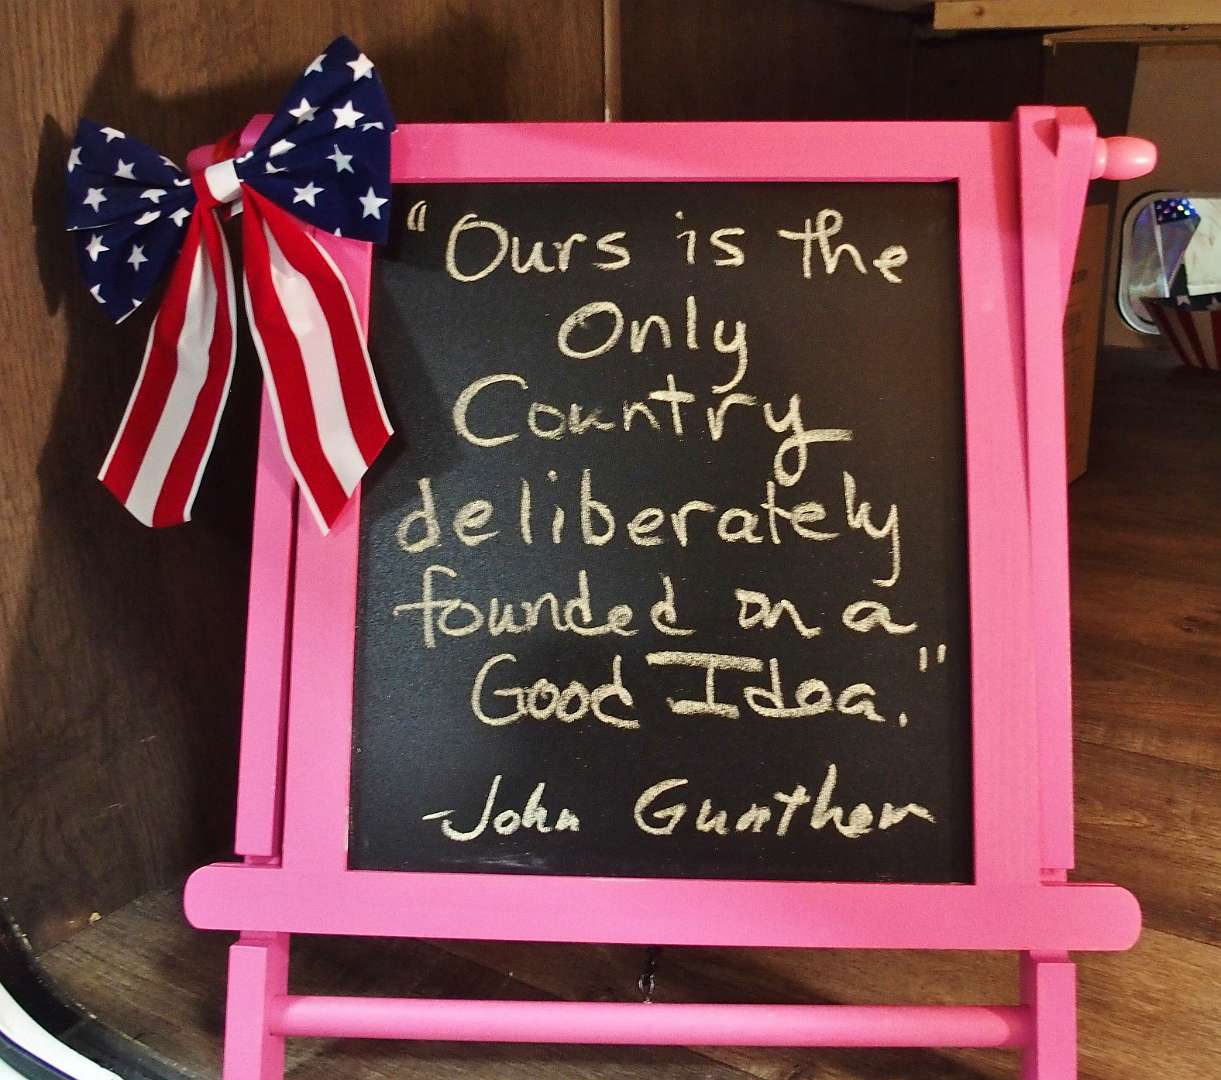 "Ours is the
Only
Country
deliberately
founded on a
Good Idea."
-John Gunther